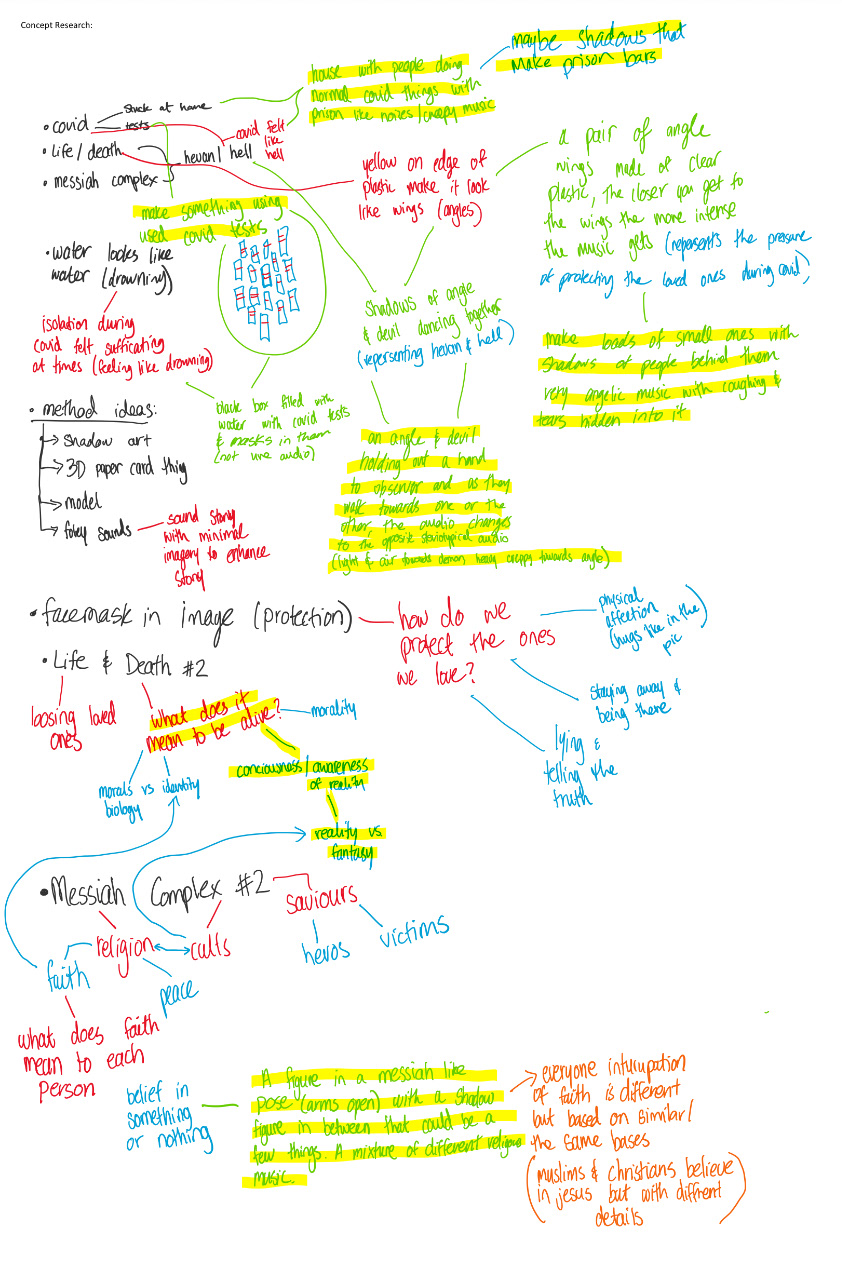 Concept Research:
maybe shadows that
make prison bars
house with people doing
normal covid things with
prison like noises / creepy music
• covid
stuck at home
tests
• life / death
• messiah complex
hevan / hell
covid felt
like
hell
yellow on edge of
plastic make it look
like wings (angles)
a pair of angle
wings made of clear
plastic, the closer you get to
the wings the more intense
the music gets (represents the pressure
of protecting the loved ones during covid)
make something using
used covid tests
• water looks like
water (drowning)
isolation during
covid felt sufficating
at times (feeling like drowning)
Shadows of angle
& devil dancing together
(repersenting hevan & hell)
make loads of small ones with
shadows of people behind them
very angelic music with coughing &
tears hidden into it
black box filled with
water with covid tests
& masks in them
(not sure audio)
• method ideas:
shadow art
3D paper card thing
model
foley sounds
sound story
with minimal
imagery to enhance
story
an angle & devil
holding out a hand
to observer and as they
walk towards one or the
other, the audio changes
to the opposite
audio
(light & air towards demon, heavy creepy towards angle)
• facemask in image (protection)
how do we
protect the ones
we love?
physical
affection
(hugs like in the
pic)
staying away &
being there
lying &
telling the
truth
• Life & Death #2
loosing loved
ones
what does it
mean to be alive?
morality
morals vs identity
biology
conciousness / awareness
of reality
reality vs
fantasy
• Messiah Complex #2
saviours
heros
victims
religion
cults
faith
peace
what does faith
mean to each
Person
belief in
something
or nothing
A figure in a messiah like
pose (arms open) with a shadow
figure in between that could be a
few things. A mixture of different religous
music.
everyone
of faith is different
but based on similar /
the same bases
(muslims & christians believe
in jesus but with diffrent
details)